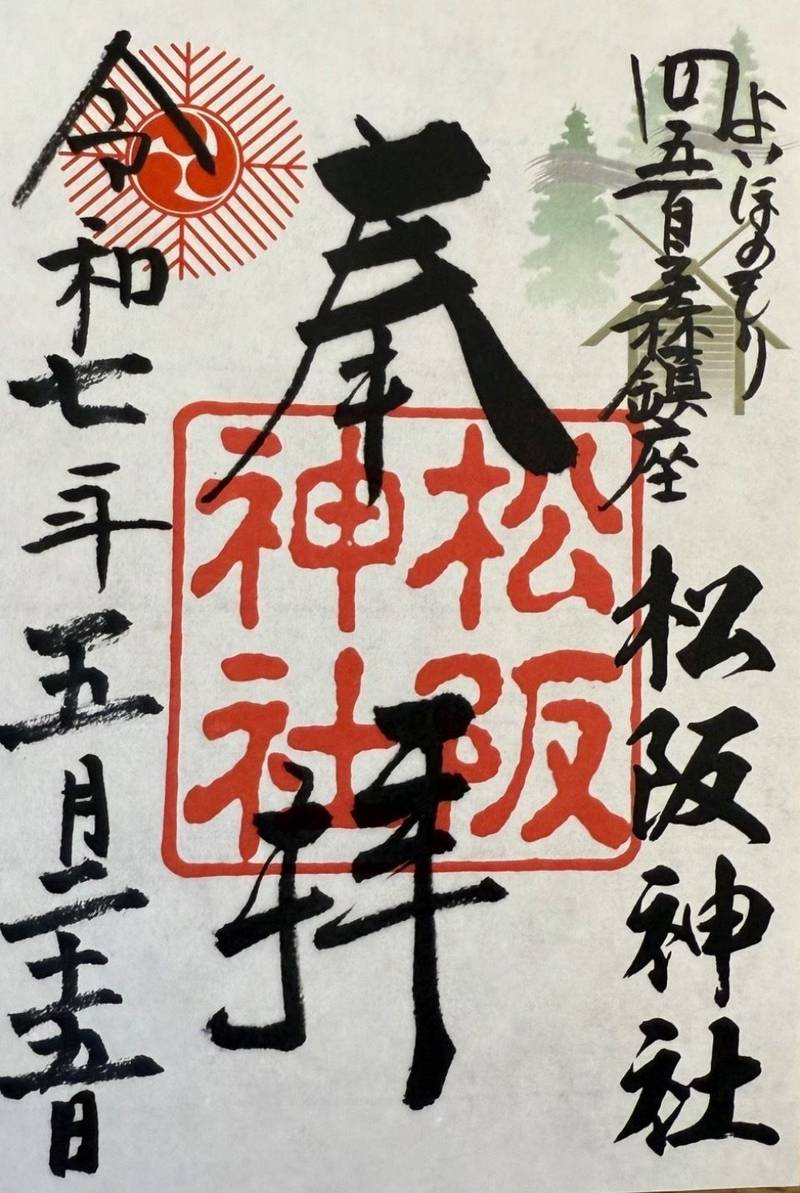 よいほのもり
四五百森鎮座
松阪神社
奉拝
松阪
神社
令和七年五月二十五日